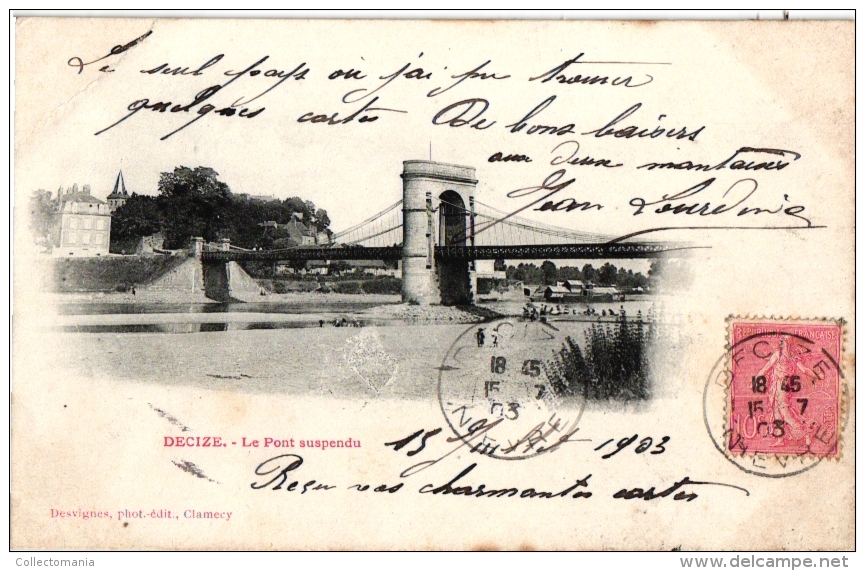 Le seul pays où j'ai pu trouver
quelques cartes De bons baisers
aux deux
Jean
RÉPUBLIQUE FRANÇAISE
DECIZE
18 45
15 7
03
NIEVRE
DECIZE
18 45
15 7
03
NIEVRE
10
DECIZE. - Le Pont suspendu
15 Juillet 1903
Reçu vos charmantes cartes
Desvignes, phot.-édit., Clamecy
Collectomania
delcampe.net